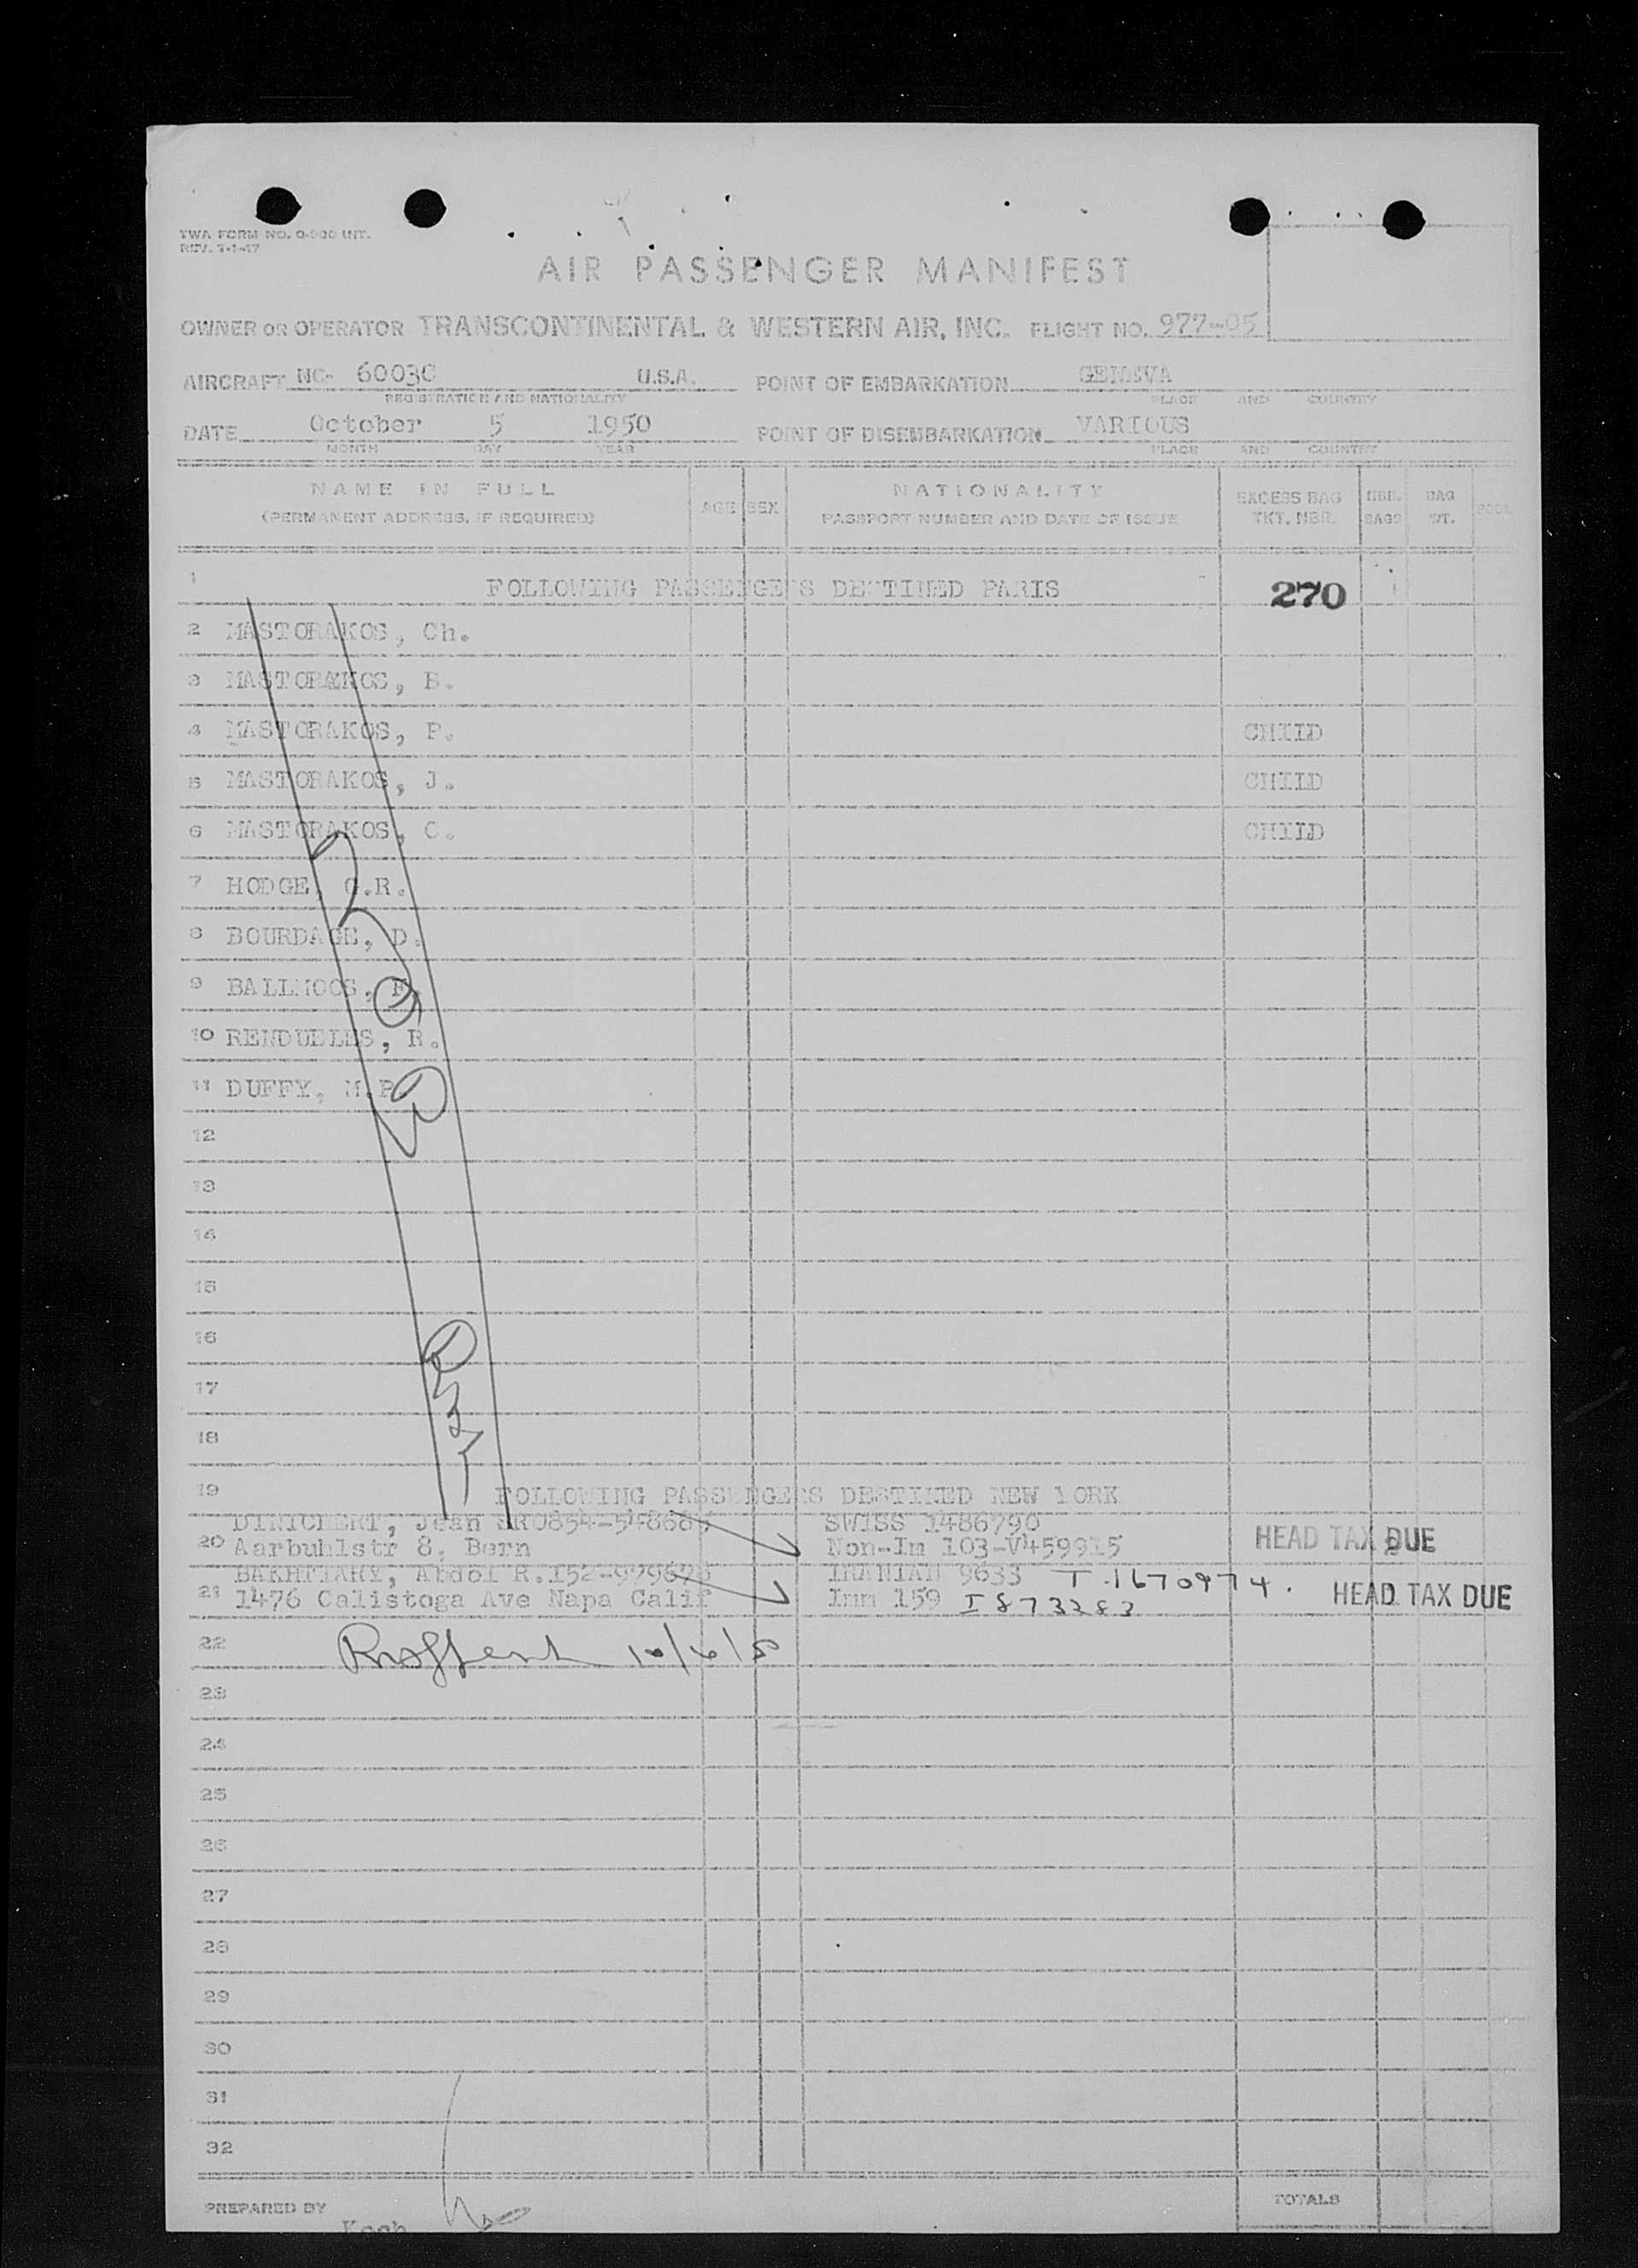 TWA FORM NO. 0-300 INT.
REV. 7-1-47
AIR PASSENGER MANIFEST
OWNER OR OPERATOR TRANSCONTINENTAL & WESTERN AIR, INC. FLIGHT NO. 977-05
AIRCRAFT NC- 6003C U.S.A. POINT OF EMBARKATION GENEVA
REGISTRATION AND NATIONALITY PLACE AND COUNTRY
DATE October 5 1950 POINT OF DISEMBARKATION VARIOUS
MONTH DAY YEAR PLACE AND COUNTRY
NAME IN FULL
(PERMANENT ADDRESS, IF REQUIRED)
AGE SEX
NATIONALITY
PASSPORT NUMBER AND DATE OF ISSUE
EXCESS BAG
TKT. NBR.
NBR.
BAGS
BAG
WT.
1 FOLLOWING PASSENGERS DESTINED PARIS 270
2 MASTORAKOS, Ch.
3 MASTORAKOS, E.
4 MASTORAKOS, P. CHILD
5 MASTORAKOS, J. CHILD
6 MASTORAKOS, C. CHILD
7 HODGE, G.R.
8 BOURDAGE, D.
9 BALLMOOS,
10 RENDUELES, R.
11 DUFFY, M.P.
12
13
14
15
16
17
18
19 FOLLOWING PASSENGERS DESTINED NEW YORK
DINICHERT, Jean SR0854- SWISS 1486790
20 Aarbuhlstr 8, Bern Non-Im 103-V459915 HEAD TAX DUE
BAKHTIARY, Abdol R. I52-979678 IRANIAN 9633 T.1670974.
21 1476 Calistoga Ave Napa Calif Imm 159 I873283 HEAD TAX DUE
22
23
24
25
26
27
28
29
30
31
32
PREPARED BY TOTALS
Koch